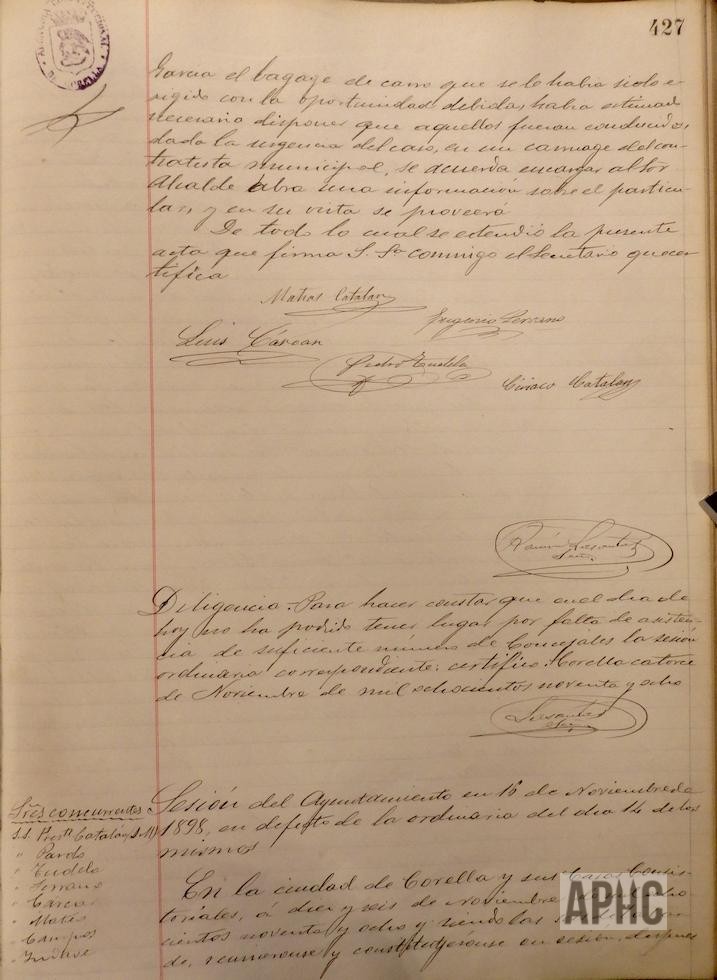 427
ALCALDIA CONSTITUCIONAL
DE CORELLA
Garcia el bagage de carro que se le habia sido e-
xigido con la oportunidad debida, habia estimado
necesario disponer que aquellos fueran conducidos,
dada la urgencia del caso, en un carruage del con-
tratista municipal, se acuerda encargar al Sor.
Alcalde abra una información sobre el particu-
lar, y en su vista se proveerá
De todo lo cual se extendió la presente
acta que firma S. Sª conmigo el Secretario que cer-
tifica
Matias Catalan
Serrano
Luis Cárcar
Pedro Tudela
Ciriaco Catalan
Ramón Srio.
Diligencia. Para hacer constar que en el dia de
hoy no ha podido tener lugar por falta de asisten-
cia de suficiente número de Concejales la sesión
ordinaria correspondiente: certifico: Corella catorce
de Noviembre de mil ochocientos noventa y ocho
Srio.
Sres concurrentes
S.S. Prest. Catalán, D. M.
" Pardo
" Tudela
" Serrano
" Cárcar
" Mateo
" Campos
Sesión del Ayuntamiento en 16 de Noviembre de
1898, en defecto de la ordinaria del dia 14 de los
mismos
En la ciudad de Corella y sus Casas Consis-
toriales, á diez y seis de Noviembre
cientos noventa y ocho y siendo las
de, reunieronse y constituyéronse en sesión, despues
APHC